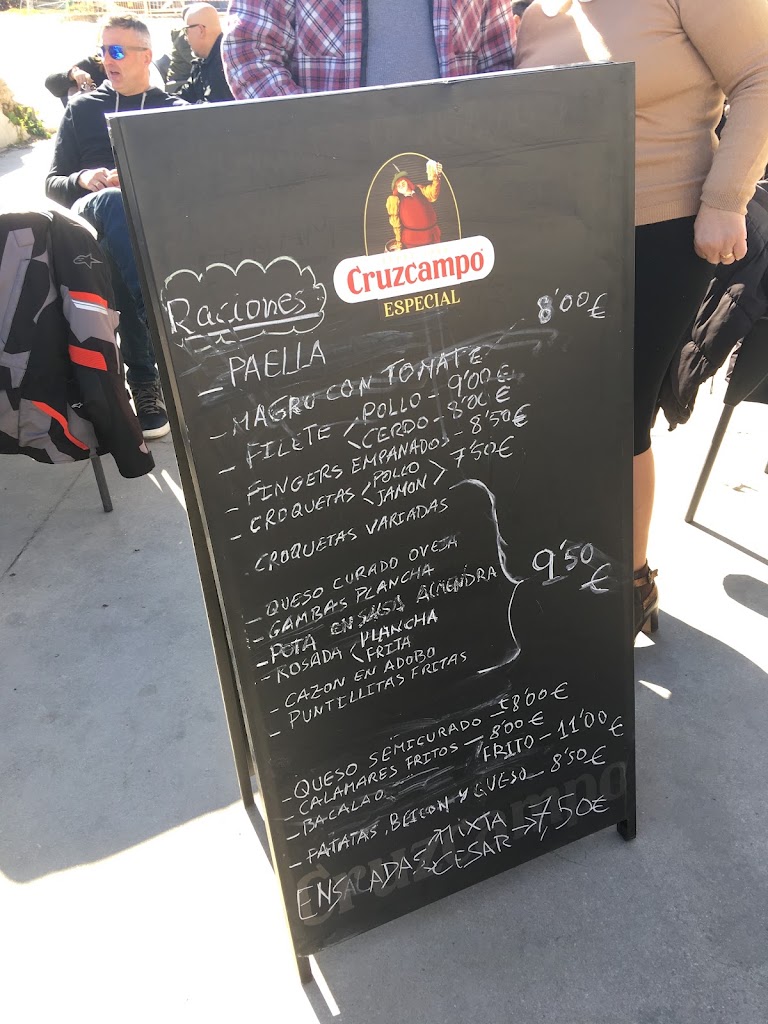 Cruzcampo
ESPECIAL
Raciones
- PAELLA 8'00 €
- MAGRO CON TOMATE
- FILETE < POLLO - 9'00 €
CERDO - 8'00 €
- FINGERS EMPANADOS - 8'50 €
- CROQUETAS < POLLO JAMON > 7'50 €
CROQUETAS VARIADAS
- QUESO CURADO OVEJA
- GAMBAS PLANCHA
- POTA EN SALSA ALMENDRA 9'50 €
- ROSADA < PLANCHA
FRITA
- CAZON EN ADOBO
- PUNTILLITAS FRITAS
- QUESO SEMICURADO - 8'00 €
- CALAMARES FRITOS - 8'00 €
- BACALAO FRITO - 11'00 €
- PATATAS, BEICON Y QUESO - 8'50 €
ENSALADAS < MIXTA
CESAR → 7,50 €
Cruzcampo